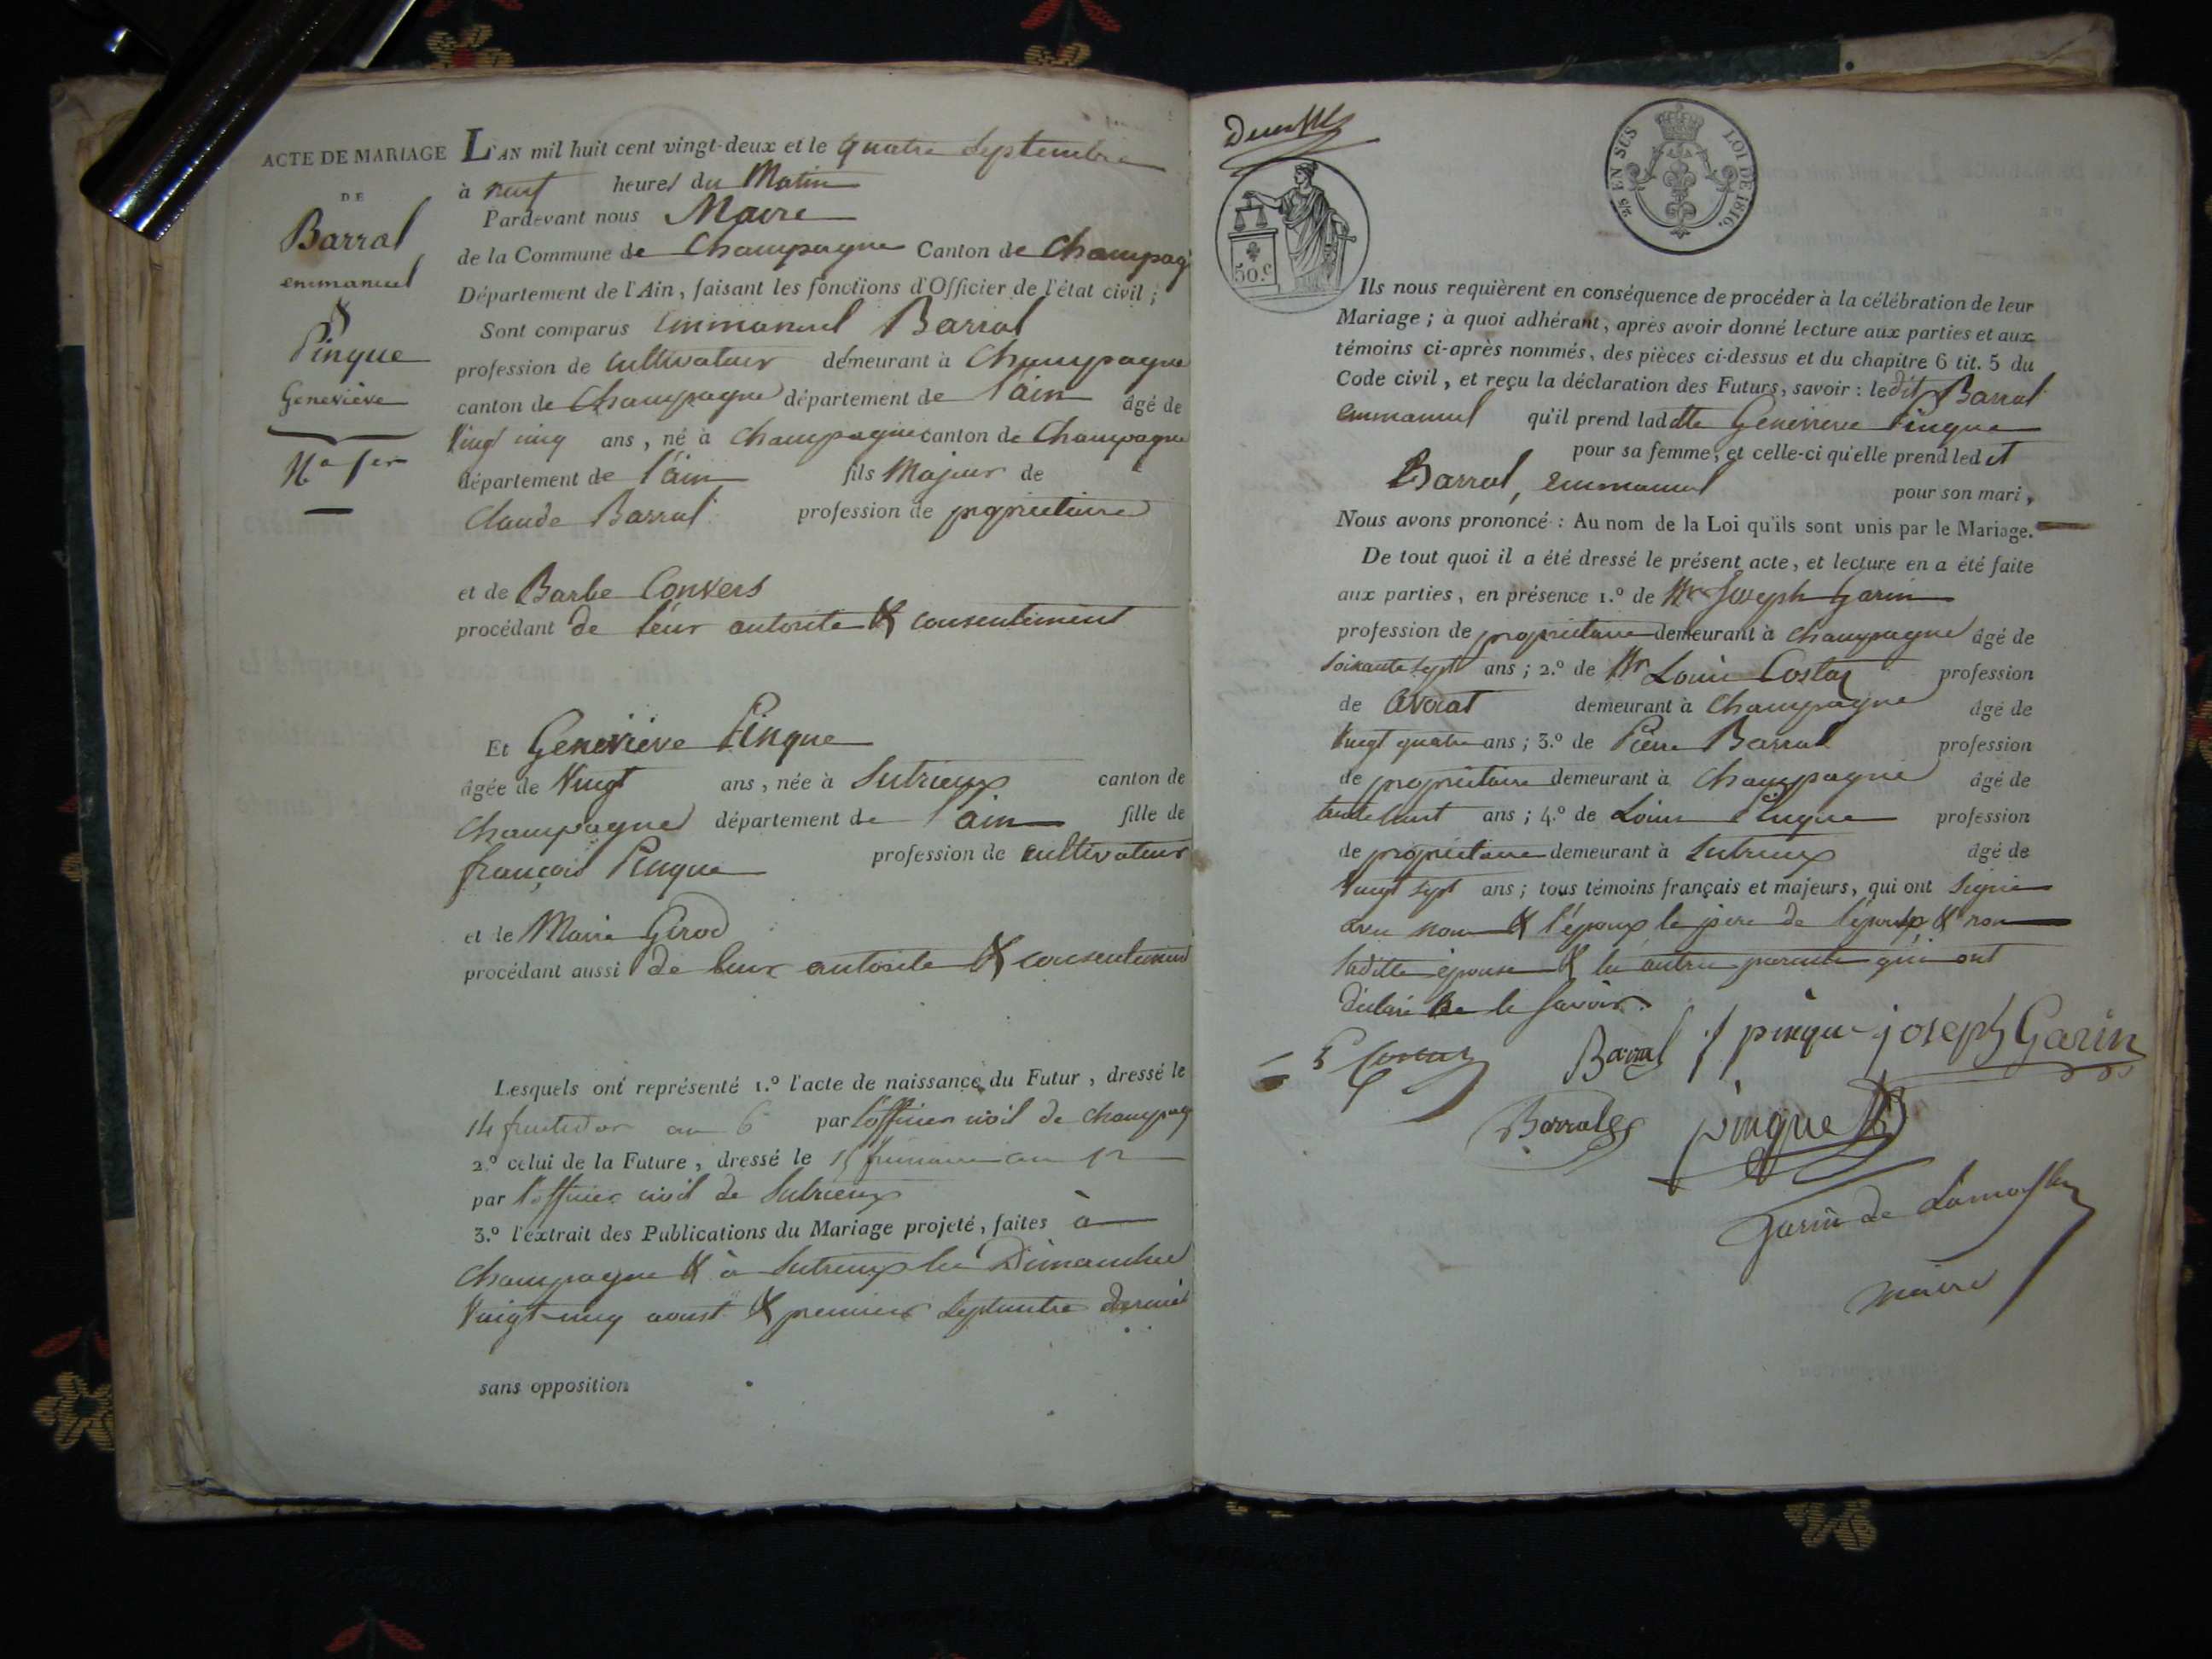 ACTE DE MARIAGE
DE
Barral
emmanuel
&
Pinque
Geneviève
N.º 1er
L'AN mil huit cent vingt-deux et le quatre Septembre
à neuf heures du Matin
Pardevant nous Maire
de la Commune de Champagne Canton de Champag
Département de l'Ain, faisant les fonctions d'Officier de l'état civil ;
Sont comparus Emmanuel Barral
profession de Cultivateur demeurant à Champagne
canton de Champagne département de l'ain âgé de
Vingt cinq ans, né à Champagne canton de Champagne
département de l'ain fils Majeur de
Claude Barral profession de propriétaire
et de Barbe Convers
procédant de leur autorité & consentement
Et Geneviève Pinque
âgée de Vingt ans, née à Sutrieux canton de
Champagne département de l'ain fille de
françois Pinque profession de cultivateur
et de Marie Girod
procédant aussi de leur autorité & consentement
Lesquels ont représenté 1.º l'acte de naissance du Futur, dressé le
14 fructidor an 6 par l'officier civil de Champag
2.º celui de la Future, dressé le 15 frimaire an 12
par l'officier civil de Sutrieux
3.º l'extrait des Publications du Mariage projeté, faites à
Champagne & à Sutrieux les Dimanches
Vingt-cinq aoust & premier Septembre dernier
sans opposition
2/5 EN SUS LOI DE 1816.
50.c
Ils nous requièrent en conséquence de procéder à la célébration de leur
Mariage ; à quoi adhérant, après avoir donné lecture aux parties et aux
témoins ci-après nommés, des pièces ci-dessus et du chapitre 6 tit. 5 du
Code civil, et reçu la déclaration des Futurs, savoir : ledit Barral
emmanuel qu'il prend ladtte Geneviève Pinque
pour sa femme, et celle-ci qu'elle prend ledit
Barral, Emmanuel pour son mari,
Nous avons prononcé : Au nom de la Loi qu'ils sont unis par le Mariage.
De tout quoi il a été dressé le présent acte, et lecture en a été faite
aux parties, en présence 1.º de Mr Joseph Garin
profession de propriétaire demeurant à Champagne âgé de
Soixante sept ans ; 2.º de Mr Louis Costaz profession
de avocat demeurant à Champagne âgé de
Vingt quatre ans ; 3.º de Pierre Barral profession
de propriétaire demeurant à Champagne âgé de
trente huit ans ; 4.º de Louis Pinque profession
de propriétaire demeurant à Sutrieux âgé de
Vingt sept ans ; tous témoins français et majeurs, qui ont Signé
avec nous & l'époux le père de l'époux & non
ladite épouse & les autres parents qui ont
déclaré ne le savoir.
Costaz Barral pinque joseph Garin
Barral pinque
Garin de Lamorflan
maire